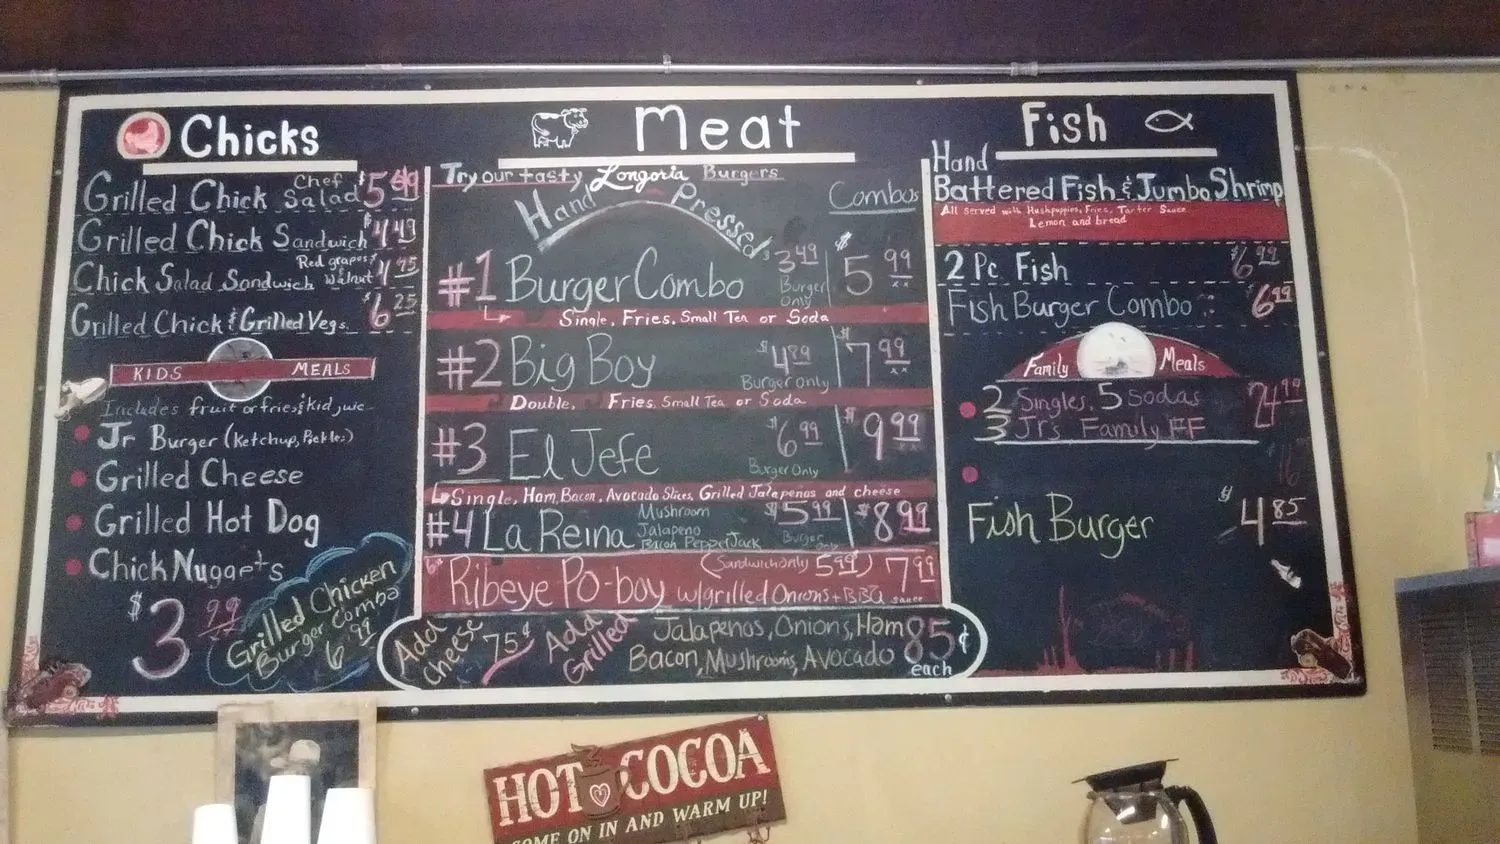 Chicks
Grilled Chick Chef Salad $5
Grilled Chick Sandwich $4.43
Chick Salad Sandwich Red grapes & Walnut $4.95
Grilled Chick & Grilled Vegs. $6.25
KIDS MEALS
Includes fruit or fries & kid juic
Jr Burger (Ketchup, Pickles)
Grilled Cheese
Grilled Hot Dog
Chick Nuggets
$3.99
Grilled Chicken
Burger Combo
6.99
Meat
Try our tasty Longoria Burgers
Hand Pressed
Combos
#1 Burger Combo 3.49 Burger Only $5.99
Single, Fries, Small Tea or Soda
#2 Big Boy $4.89 Burger Only $7.99
Double, Fries, Small Tea or Soda
#3 El Jefe $6.99 Burger Only $9.99
Single, Ham, Bacon, Avocado Slices, Grilled Jalapeños and cheese
#4 La Reina Mushroom Jalapeno Bacon PepperJack $5.99 Burger Only $8.99
Ribeye Po-boy (Sandwich only 5.99) 7.99
w/grilled Onions + BBQ sauce
Add Cheese 75¢
Add Grilled Jalapenos, Onions, Ham
Bacon, Mushrooms, Avocado 85¢ each
Fish
Hand
Battered Fish & Jumbo Shrimp
All served with Hushpuppies, Fries, Tarter Sauce
Lemon and bread
2 Pc. Fish $6.99
Fish Burger Combo : $6.99
Family Meals
2 Singles, 5 Sodas 24.99
3 Jr's Family FF
Fish Burger $4.85
HOT COCOA
COME ON IN AND WARM UP!